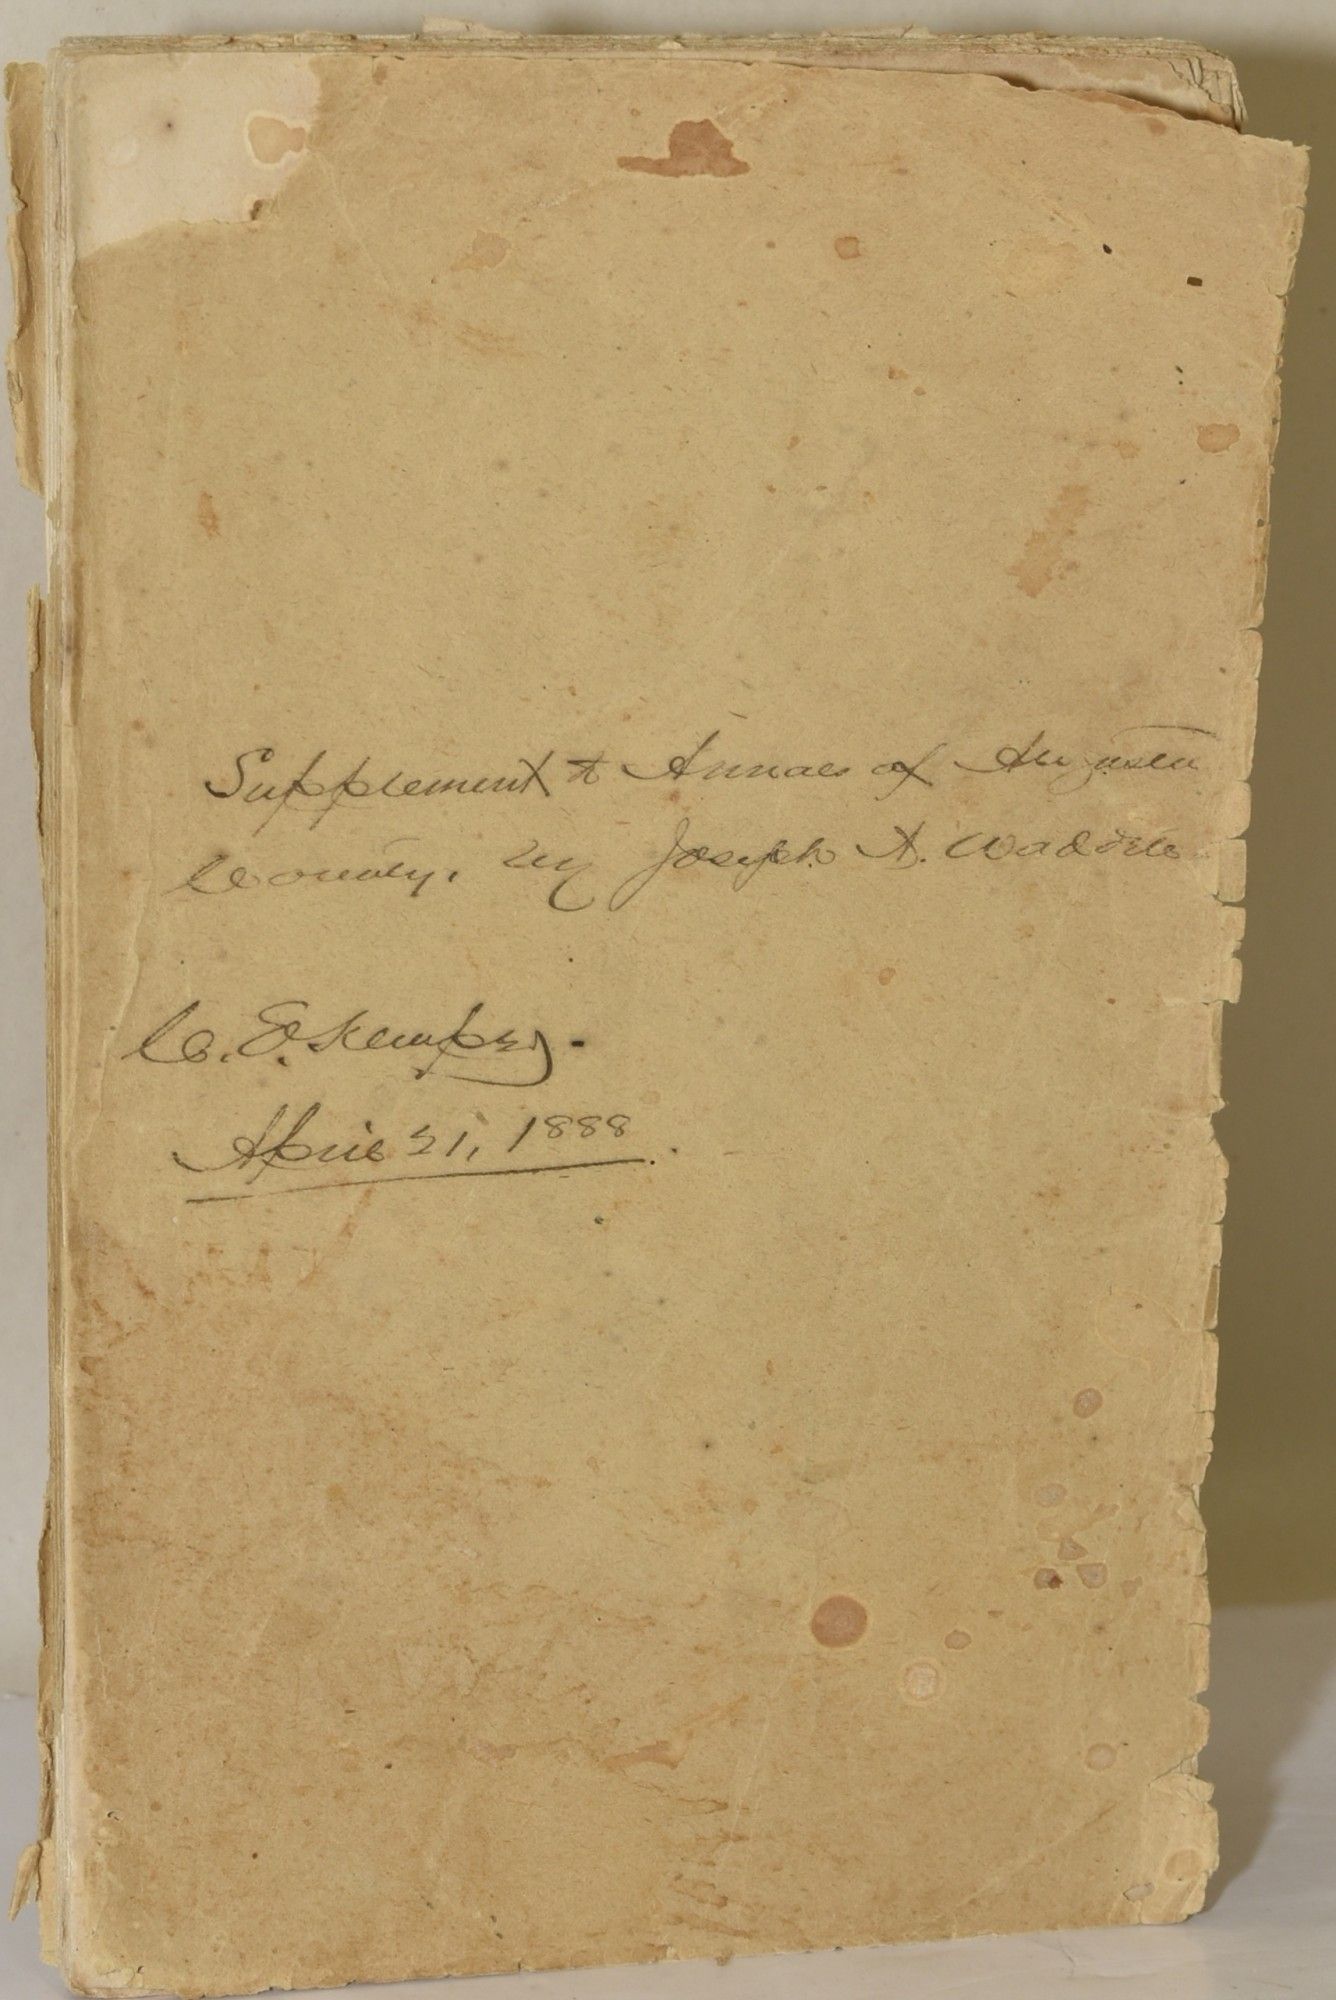 Supplement to Annals of Augusta
County, by Joseph A. Waddell
C. E. Kemper.
April 21, 1888.